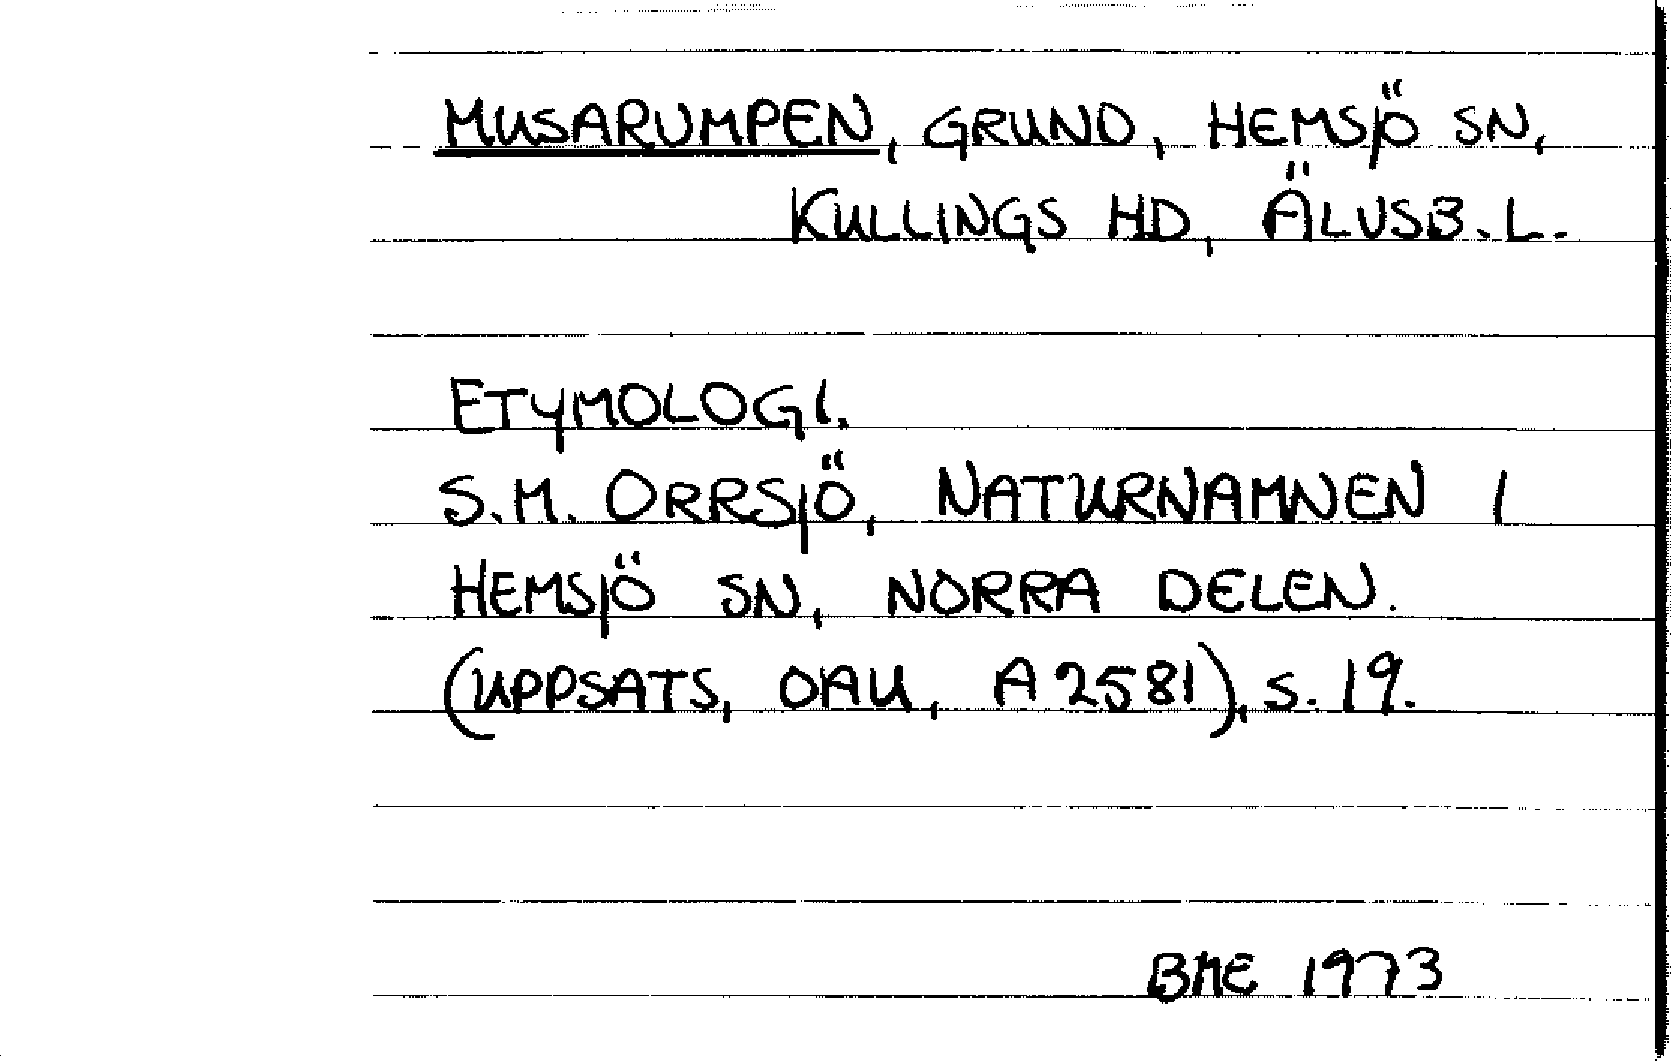 MUSARUMPEN, GRUND, HEMSJÖ SN,
KULLINGS HD, ÄLVSB. L.
ETYMOLOGI.
S.M. ORRSJÖ, NATURNAMNEN I
HEMSJÖ SN, NORRA DELEN.
(UPPSATS, OAU, A 2581), S. 19.
BME 1973